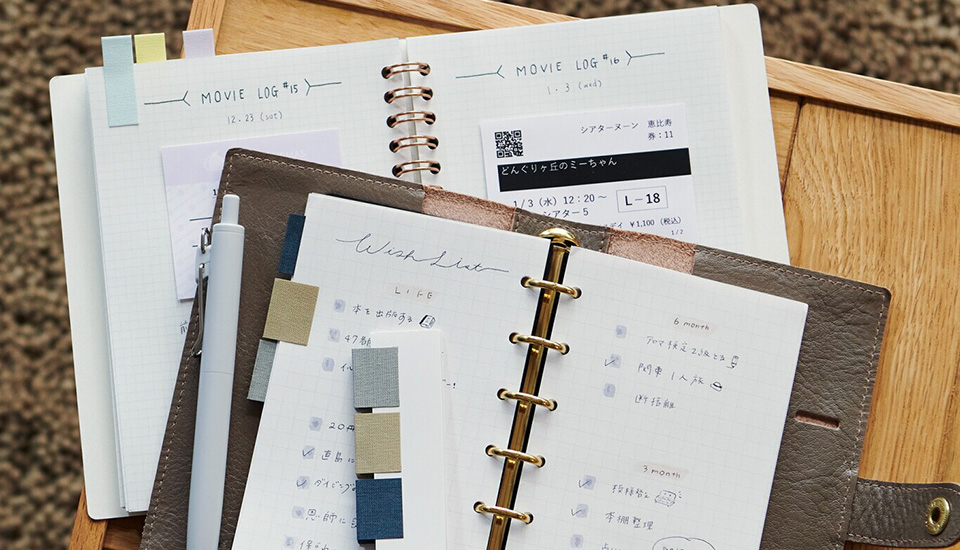 MOVIE LOG #15
12.23 (sat)
MOVIE LOG #16
1.3 (wed)
シアターヌーン 恵比寿
券:11
どんぐりヶ丘のミーちゃん
1/3 (水) 12:20~
L-18
シアター5
デイ ¥1,100 (税込)
1/2
Wish List
LIFE
本を出版する
47都
20冊
直島に
ダイビング
恩師に
6 month
アロマ検定2級とる
関東1人旅
断捨離
3 month
模様替え
本棚整理